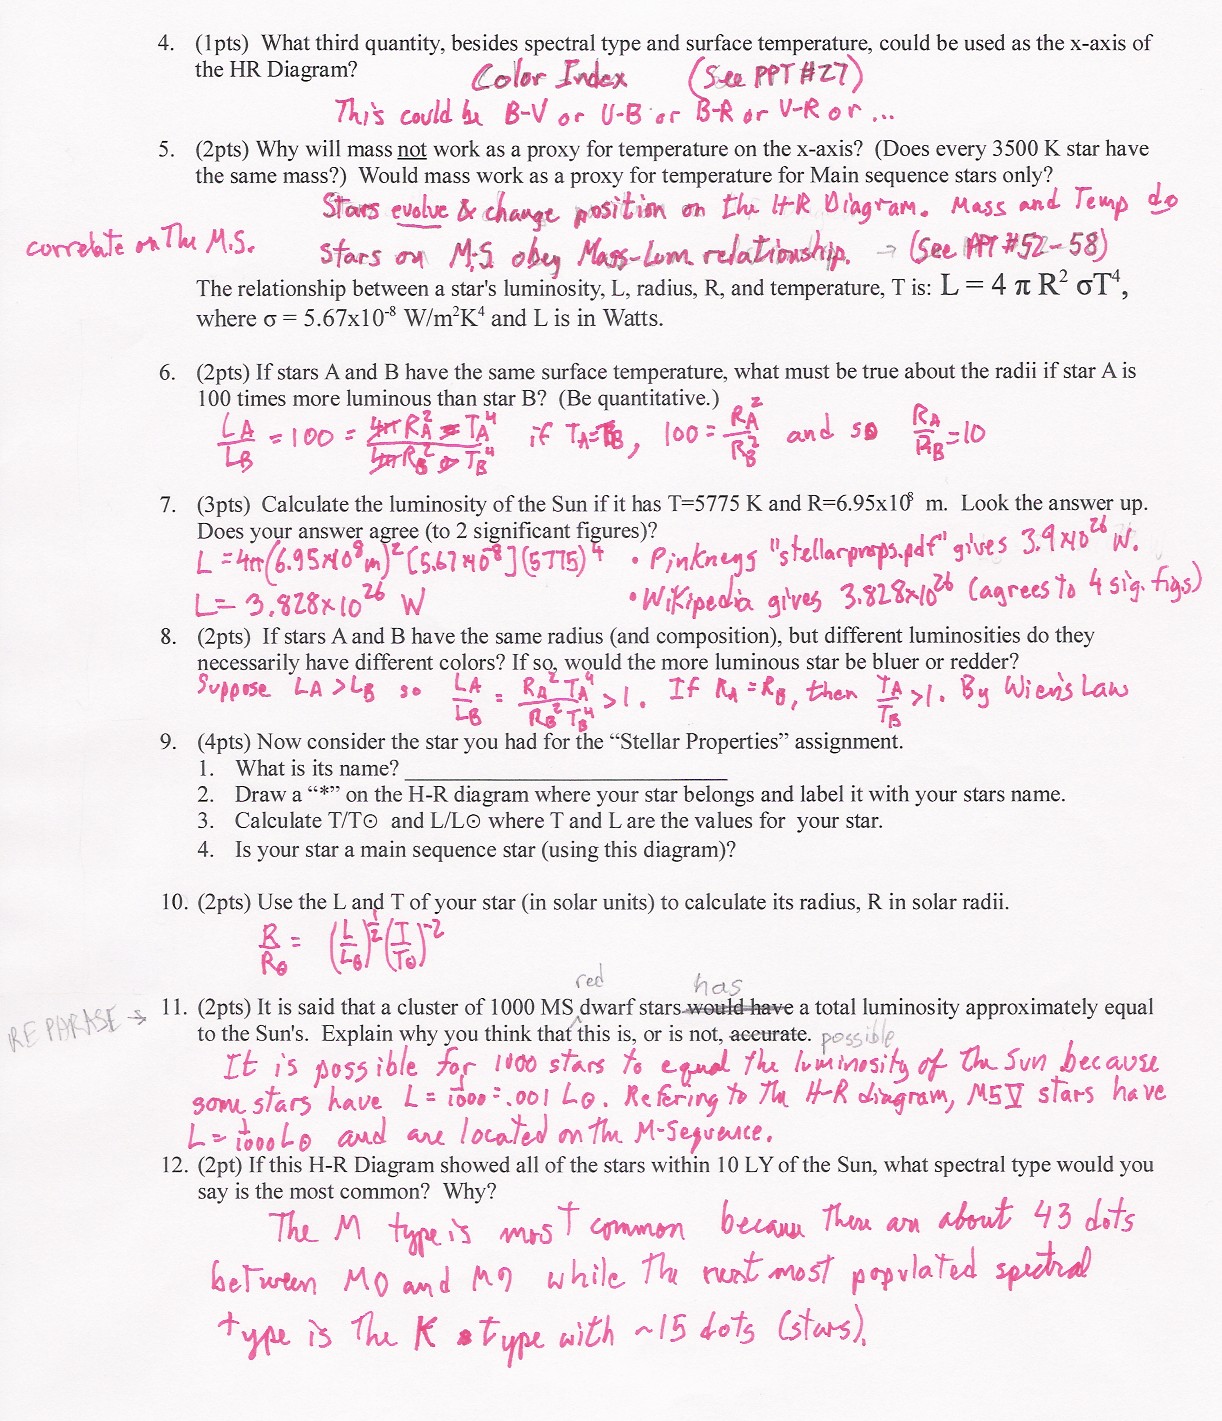 4. (1pts) What third quantity, besides spectral type and surface temperature, could be used as the x-axis of
the HR Diagram?
Color Index (See PPT #27)
This could be B-V or U-B or B-R or V-R or ...
5. (2pts) Why will mass not work as a proxy for temperature on the x-axis? (Does every 3500 K star have
the same mass?) Would mass work as a proxy for temperature for Main sequence stars only?
Stars evolve & change position on the H-R Diagram. Mass and Temp do
correlate on The M.S.
stars on M.S. obey Mass-Lum. relationship. → (See PPT #52-58)
The relationship between a star's luminosity, L, radius, R, and temperature, T is: L = 4 π R² σT⁴,
where σ = 5.67x10⁻⁸ W/m²K⁴ and L is in Watts.
6. (2pts) If stars A and B have the same surface temperature, what must be true about the radii if star A is
100 times more luminous than star B? (Be quantitative.)
L_A/L_B = 100 = 4π R_A² σ T_A⁴ / 4π R_B² σ T_B⁴ if T_A=T_B, 100 = R_A²/R_B² and so R_A/R_B = 10
7. (3pts) Calculate the luminosity of the Sun if it has T=5775 K and R=6.95x10⁸ m. Look the answer up.
Does your answer agree (to 2 significant figures)?
L = 4π(6.95x10⁸m)² [5.67x10⁻⁸](5775)⁴ • Pinkneys "stellarprops.pdf" gives 3.9x10²⁶ W.
L = 3.828x10²⁶ W • Wikipedia gives 3.828x10²⁶ (agrees to 4 sig. figs)
8. (2pts) If stars A and B have the same radius (and composition), but different luminosities do they
necessarily have different colors? If so, would the more luminous star be bluer or redder?
Suppose L_A > L_B so L_A/L_B = R_A² T_A⁴ / R_B² T_B⁴ > 1. If R_A = R_B, then T_A/T_B > 1. By Wien's Law
9. (4pts) Now consider the star you had for the “Stellar Properties” assignment.
1. What is its name?
2. Draw a “*” on the H-R diagram where your star belongs and label it with your stars name.
3. Calculate T/T⊙ and L/L⊙ where T and L are the values for your star.
4. Is your star a main sequence star (using this diagram)?
10. (2pts) Use the L and T of your star (in solar units) to calculate its radius, R in solar radii.
R/R⊙ = (L/L⊙)^½ (T/T⊙)⁻²
red has
REPHRASE → 11. (2pts) It is said that a cluster of 1000 MS dwarf stars would have a total luminosity approximately equal
to the Sun's. Explain why you think that this is, or is not, accurate. possible
It is possible for 1000 stars to equal the luminosity of the Sun because
some stars have L = 1/1000 = .001 L⊙. Refering to The H-R diagram, M5V stars have
L = 1/1000 L⊙ and are located on the M-Sequence.
12. (2pt) If this H-R Diagram showed all of the stars within 10 LY of the Sun, what spectral type would you
say is the most common? Why?
The M type is most common because There are about 43 dots
between M0 and M9 while The next most populated spectral
type is The K type with ~15 dots (stars).